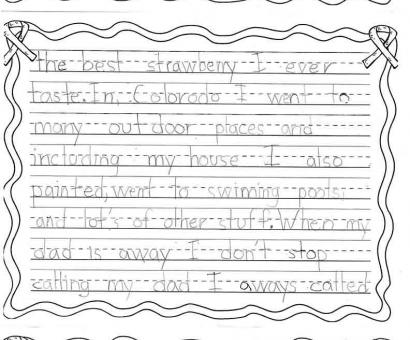 the best strawberry I ever
taste. In, Colorodo I went to
many outdoor places and
including my house I also
painted, went to swiming pools,
and lot's of other stuff. When my
dad is away I don't stop
calling my dad I aways called